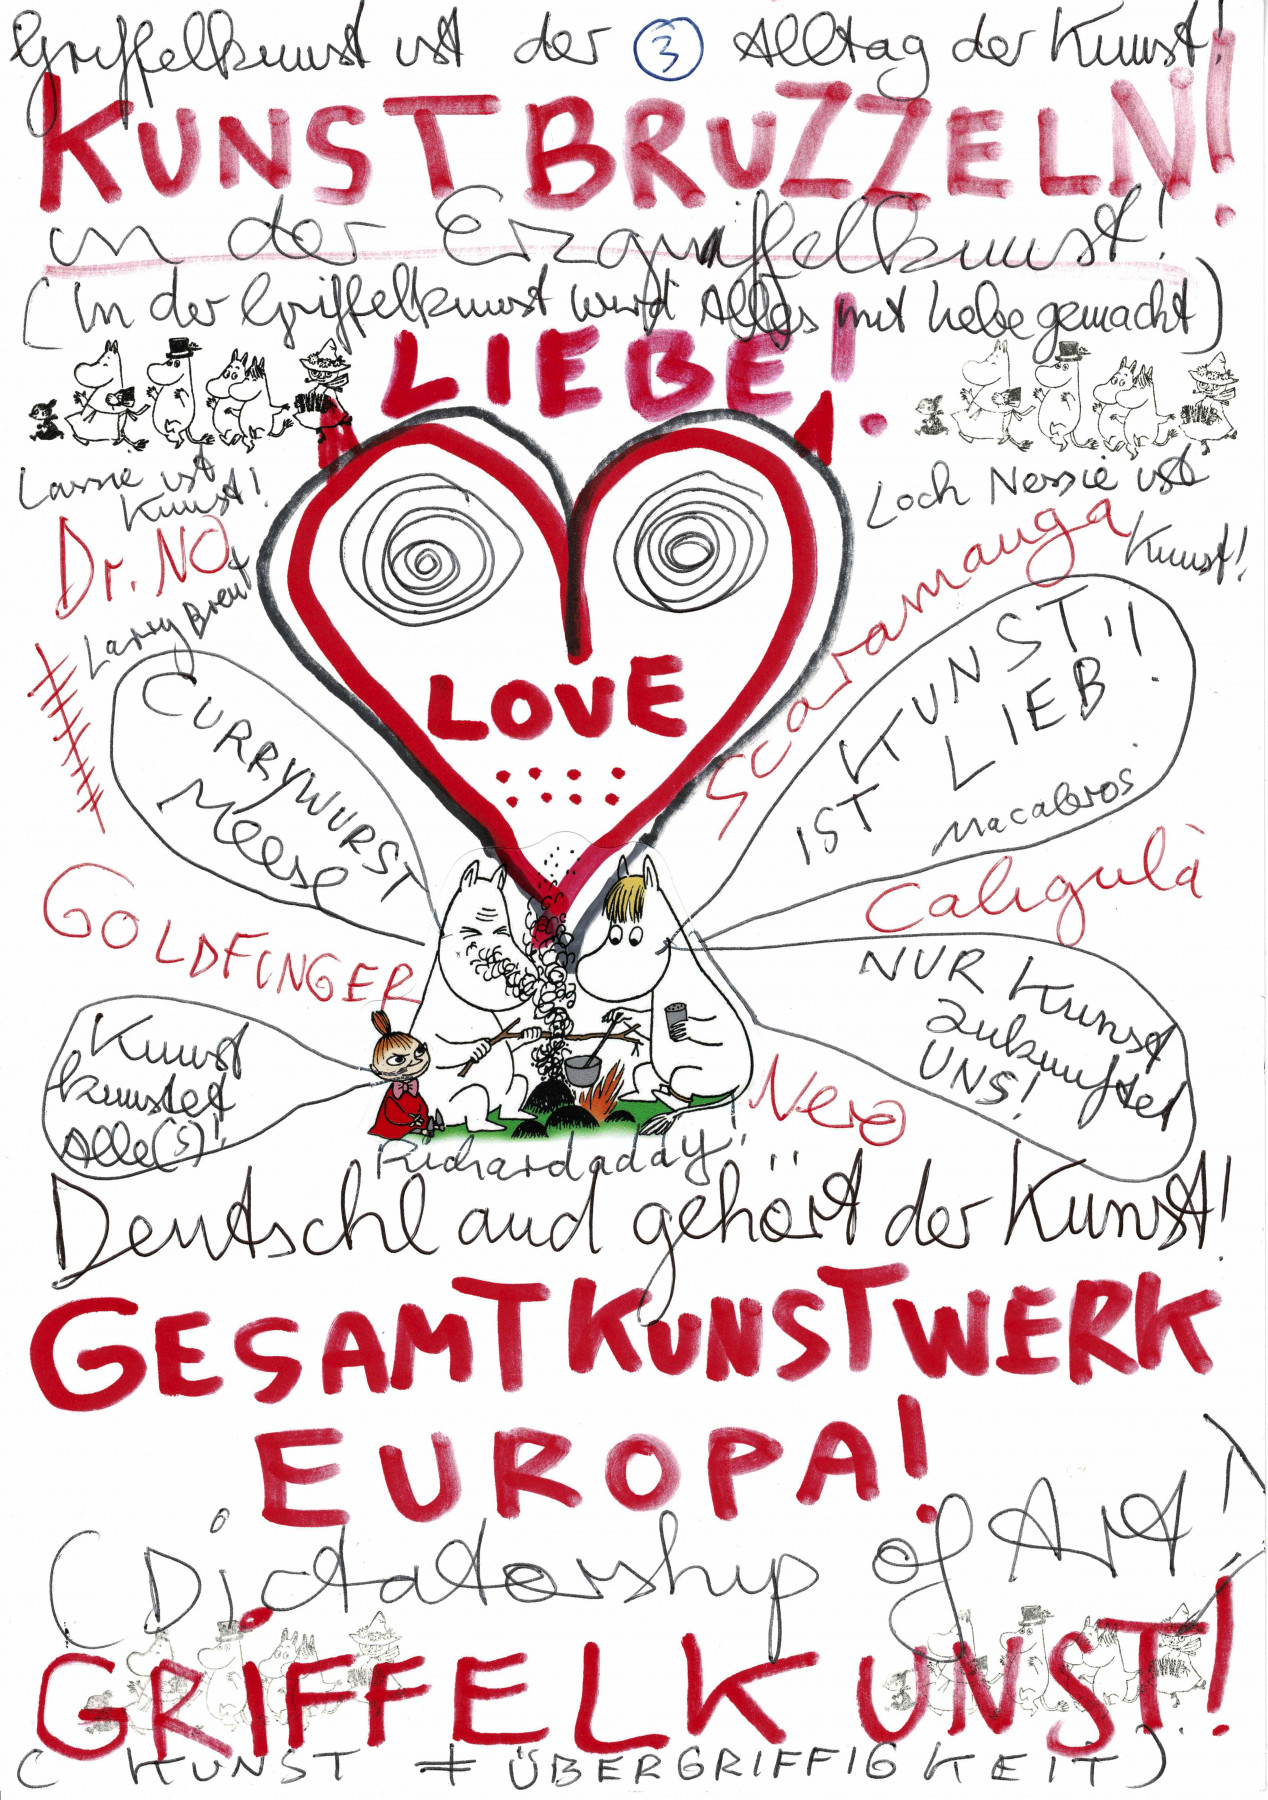 Griffelkunst ist der 3 Alltag der Kunst!
KUNSTBRUZZELN!
in der Erzgriffelkunst!
(In der Griffelkunst wird Alles mit Liebe gemacht)
LIEBE!
Lassie ist
Kunst!
Loch Nessie ist
Kunst!
Dr. NO
Larry Brent
Scaramauga
LOVE
CURRYWURST
Meese
KUNST!!
IST LIEB!
Macabros
GOLDFINGER
Caligulà
NUR Kunst
zukunftet
UNS!
Kunst
kunstet
Alle(s)!
Nero
Richardaddy!
Deutschland gehört der Kunst!
GESAMTKUNSTWERK
EUROPA!
(Dictatorship of Art!)
GRIFFELKUNST!
(KUNST ≠ ÜBERGRIFFIGKEIT)